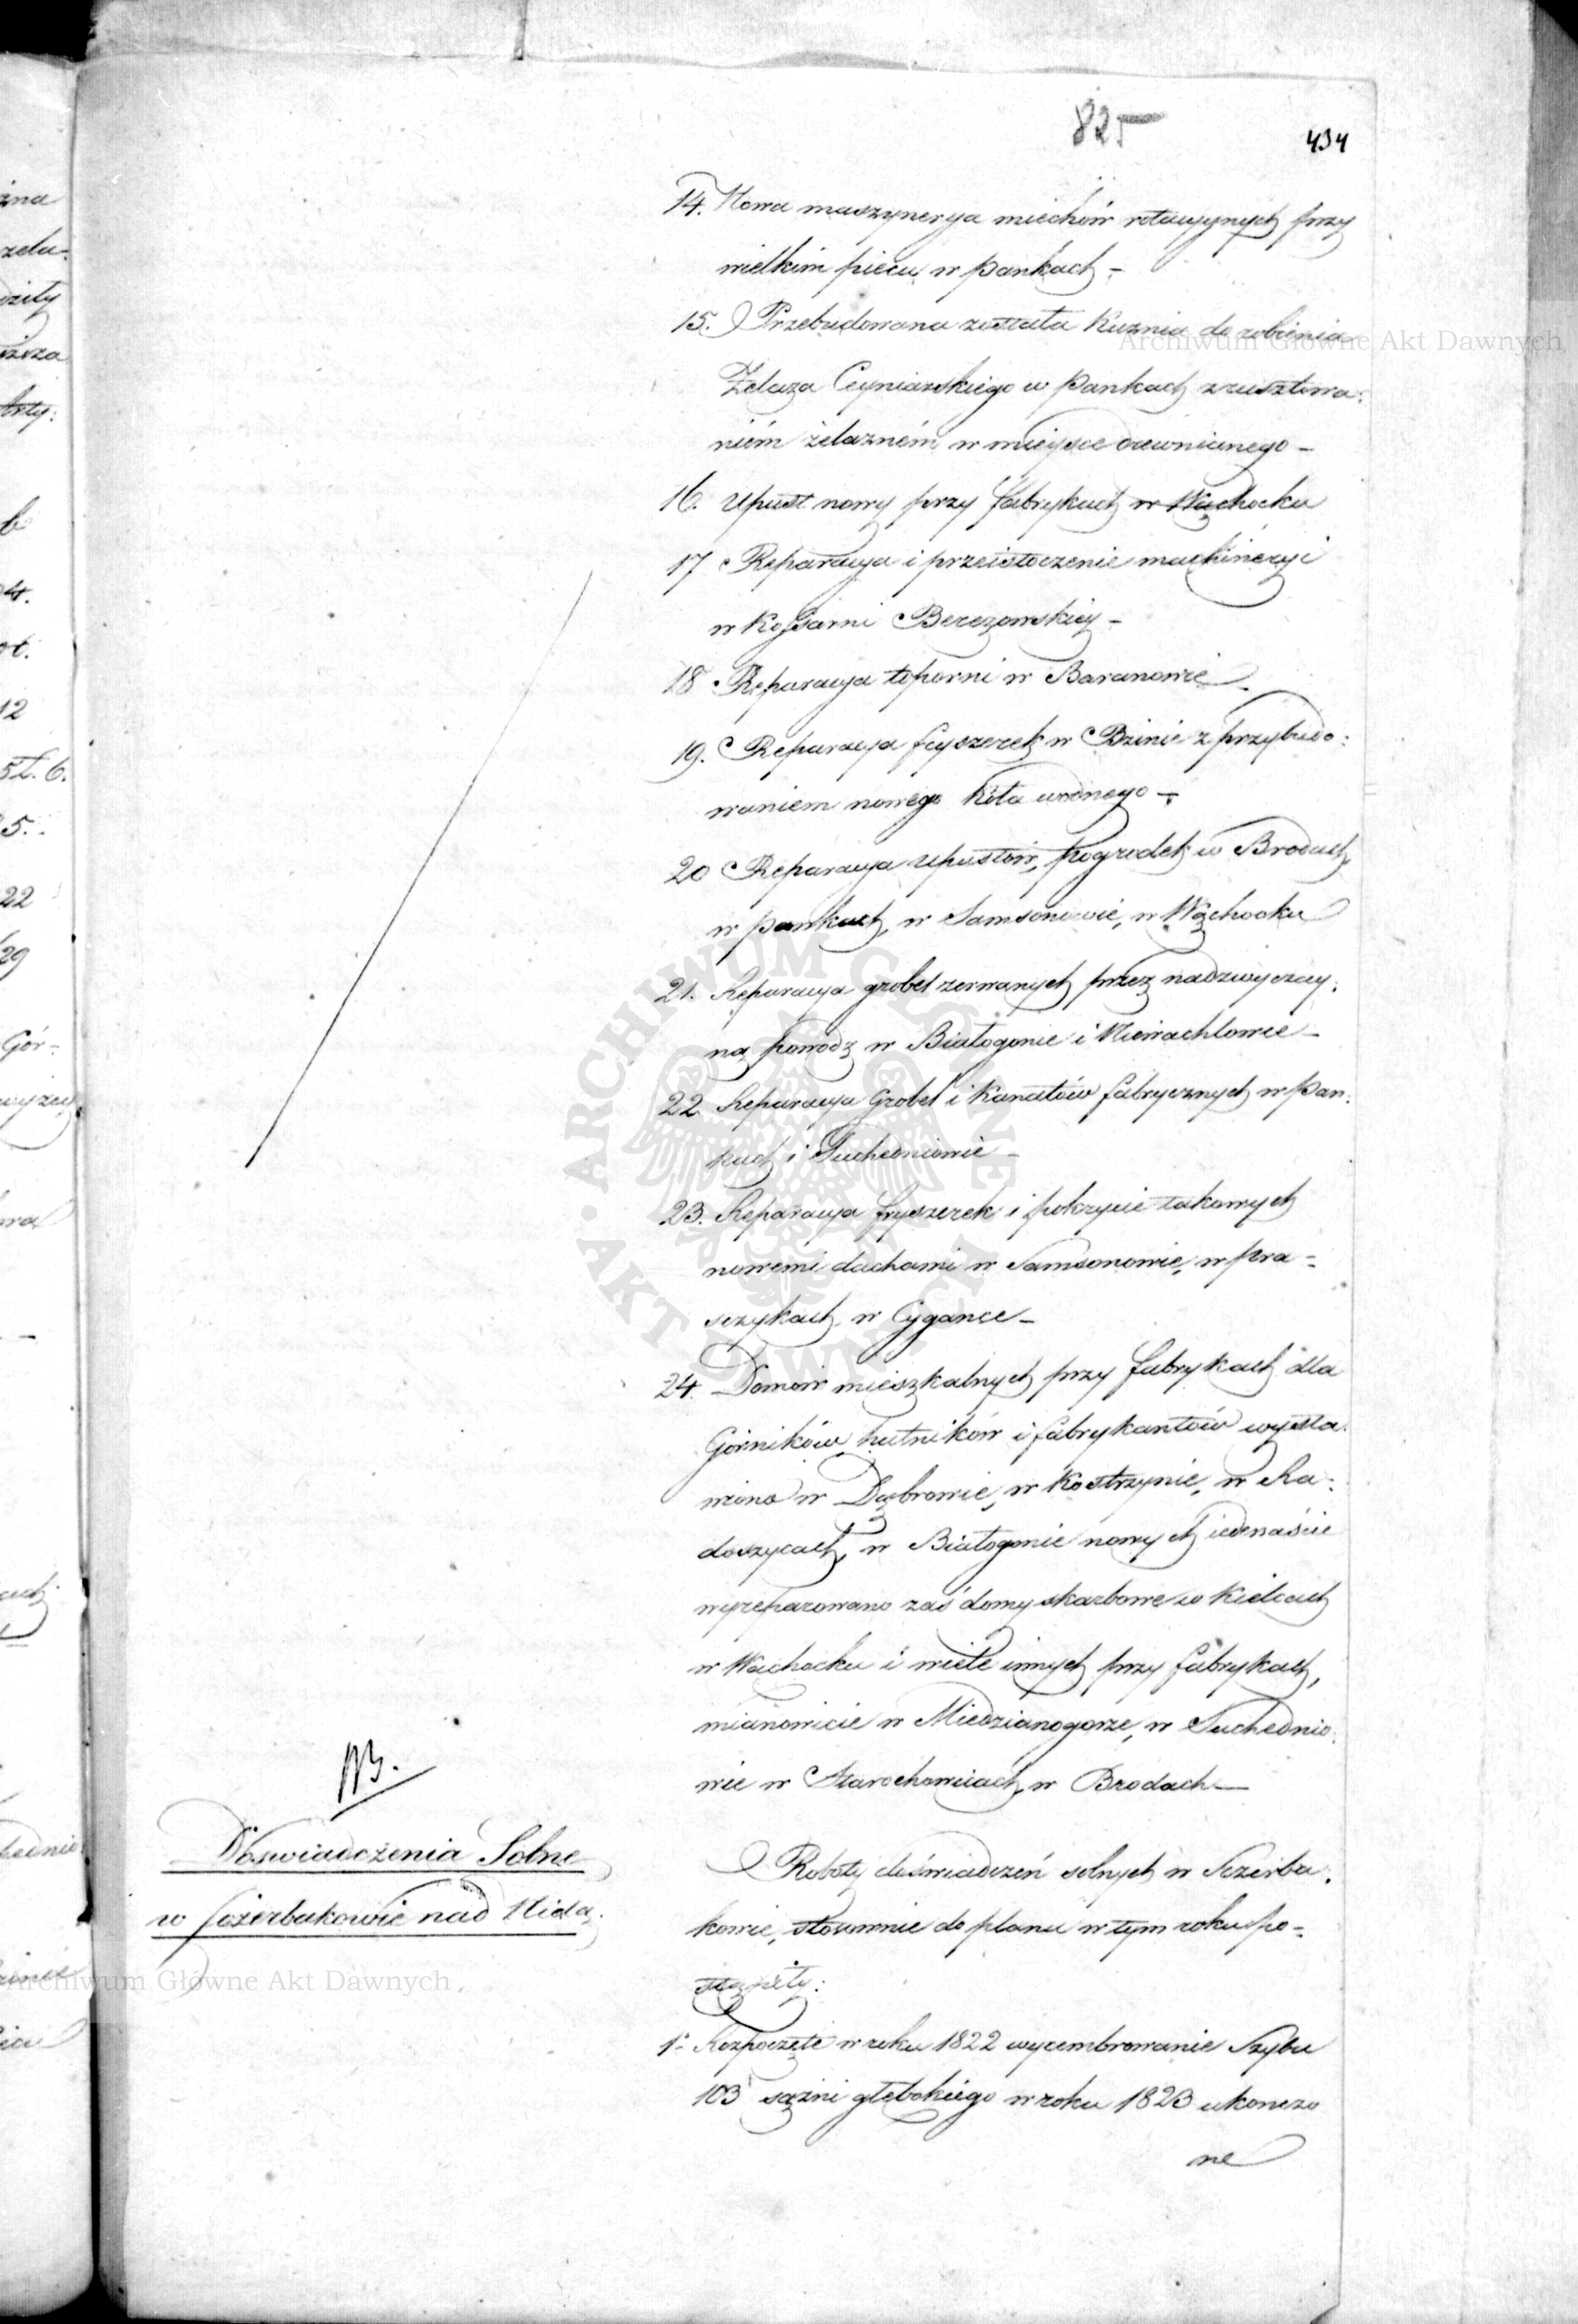 825
434
14. Nowa maszynerya miechów rotacyjnych przy
wielkim piecu w Pankach –
15. Przebudowana została Kuznia do robienia
Żelaza Ceyniarskiego w Pankach z rusztowa:
niém żelazném w mieysce drewnianego –
16. Upust nowy przy fabrykach w Wąchocku
17 Reparacya i przeistoczenie machineryi
w Kossarni Berezowskiey –
18 Reparacya toporni w Baranowie
19. Reparacya fryszerek w Bzinie z przybudo:
waniem nowego koła wodnego –
20 Reparacya upustów, pogrodek w Brodach,
w Pankach, w Samsonowie, w Wąchocku
21. Reparacya grobel zerwanych przez nadzwyczay:
ną powódz w Białogonie i Niewachlowie –
22. Reparacya Grobel i Kanałów fabrycznych w Pan:
kach i Suchedniowie –
23. Reparacya fryszerek i pokrycie takowych
nowemi dachami w Samsonowie, w Pra–
szczykach, w Cygance –
24. Domów mieszkalnych przy fabrykach dla
Górników, hutników i fabrykantów wysta:
wiono w Dąbrowie, w Kostrzynie, w Ra:
doszycach, w Białogonie nowych iedenaście
wyreparowano zaś domy skarbowe w Kielcach
w Wąchocku i wiele innych przy fabrykach,
mianowicie w Miedzianogorze, w Suchednio:
wie w Starochowicach, w Brodach –
Doswiadczenia Solne
w Szczerbakowie nad Nidą.
Roboty doświadczeń solnych w Szczerba:
kowie, stosownie do planu w tym roku po–
stąpiły:
1° Rozpoczęte w roku 1822 wycembrowanie Szybu
103 sążni głębokiego w roku 1823 ukończo
ne
Archiwum Główne Akt Dawnych
Archiwum Główne Akt Dawnych
ARCHIWUM GŁÓWNE AKT DAWNYCH